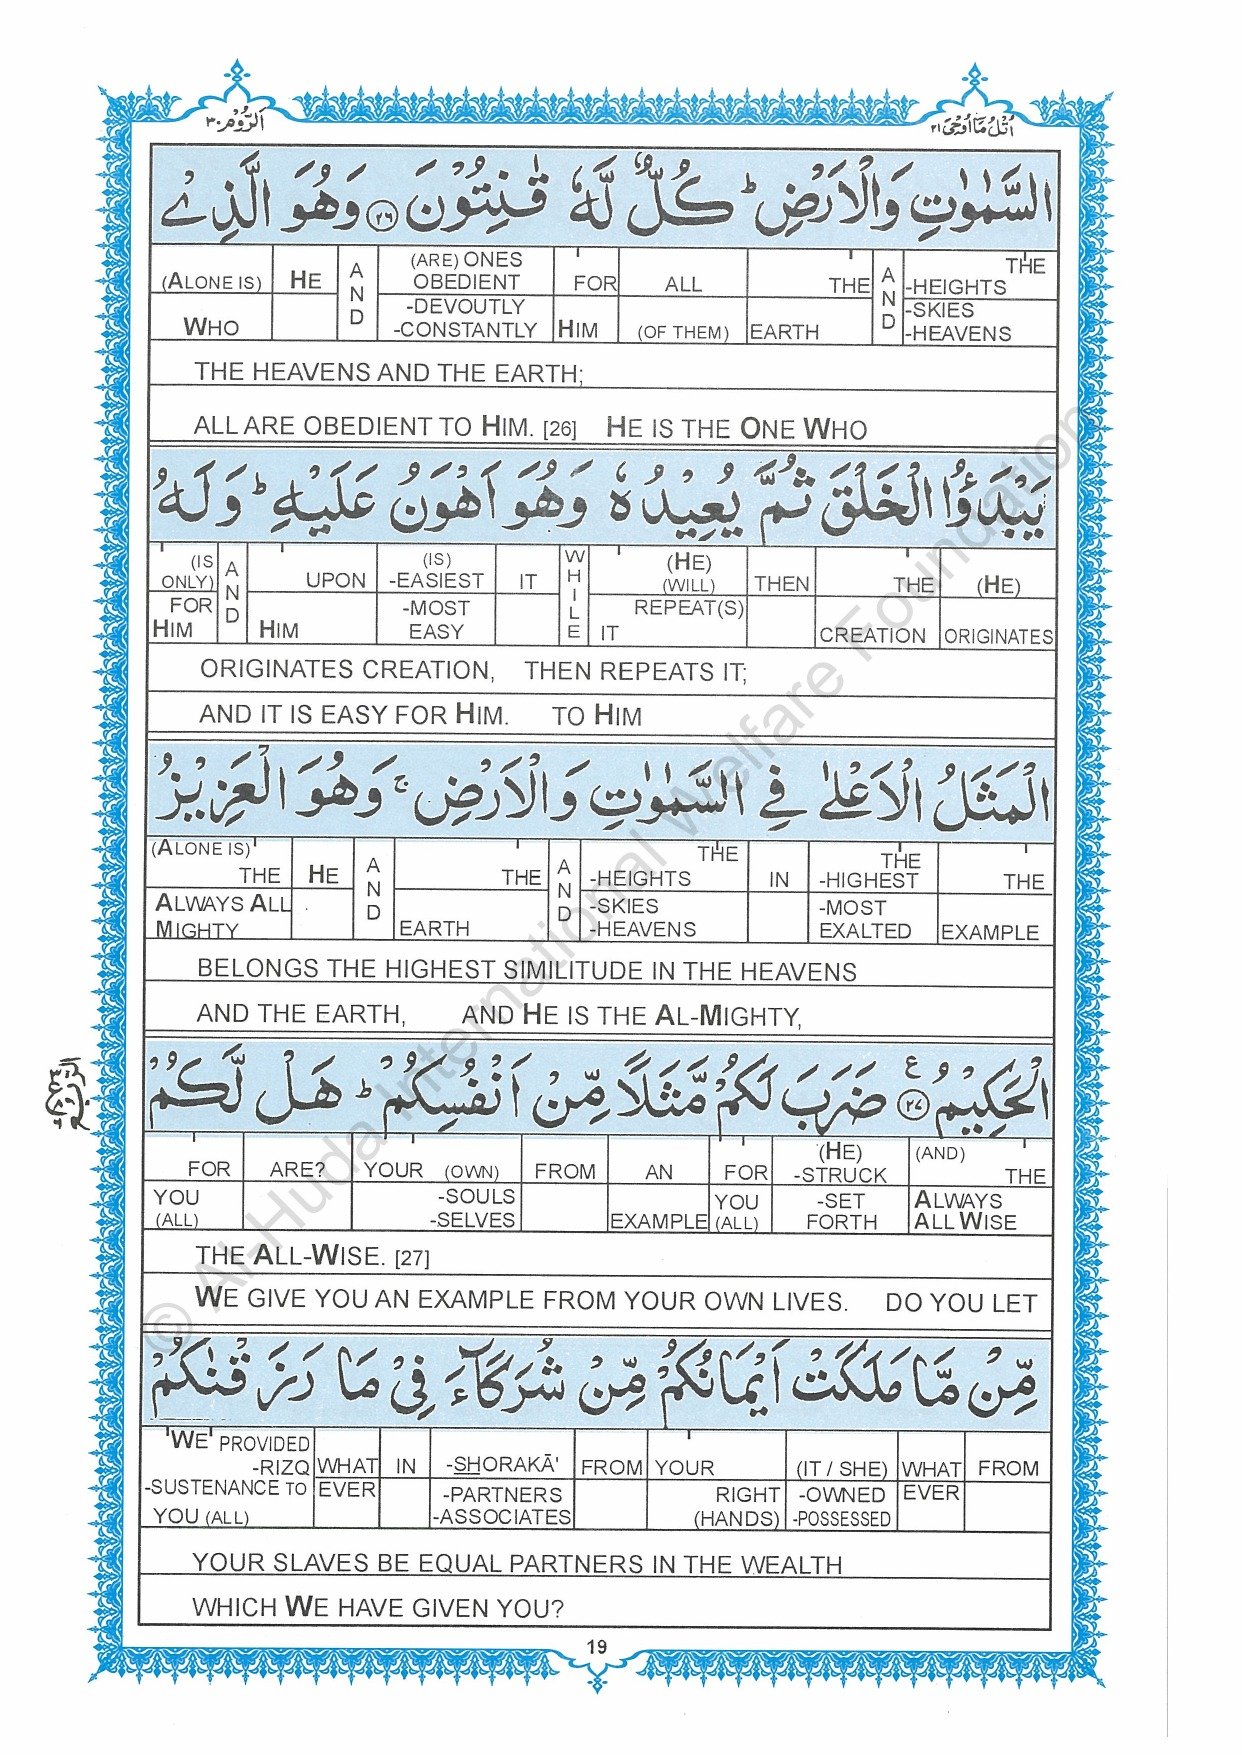 اَلرُّوْم ٣٠
اُتْلُ مَا اُوْحِىَ ٢١
السَّمٰوٰتِ وَالْاَرْضِ ؕ كُلٌّ لَّهٗ قٰنِتُوْنَ ﴿٢٦﴾ وَهُوَ الَّذِىْ
(ALONE IS) HE AND (ARE) ONES FOR ALL THE AND THE
OBEDIENT -HEIGHTS
WHO -DEVOUTLY HIM (OF THEM) EARTH -SKIES
-CONSTANTLY -HEAVENS
THE HEAVENS AND THE EARTH;
ALL ARE OBEDIENT TO HIM. [26] HE IS THE ONE WHO
يَبْدَؤُا الْخَلْقَ ثُمَّ يُعِيْدُهٗ وَهُوَ اَهْوَنُ عَلَيْهِ ؕ وَلَهُ
(IS AND UPON (IS) IT WHILE (HE) THEN THE (HE)
ONLY) -EASIEST (WILL)
FOR HIM -MOST REPEAT(S) CREATION ORIGINATES
HIM EASY IT
ORIGINATES CREATION, THEN REPEATS IT;
AND IT IS EASY FOR HIM. TO HIM
الْمَثَلُ الْاَعْلٰى فِى السَّمٰوٰتِ وَالْاَرْضِ ۚ وَهُوَ الْعَزِيْزُ
(ALONE IS) HE AND THE AND THE IN THE THE
THE -HEIGHTS -HIGHEST
ALWAYS ALL EARTH -SKIES -MOST EXAMPLE
MIGHTY -HEAVENS EXALTED
BELONGS THE HIGHEST SIMILITUDE IN THE HEAVENS
AND THE EARTH, AND HE IS THE AL-MIGHTY,
الْحَكِيْمُ ﴿٢٧﴾ ع ضَرَبَ لَكُمْ مَّثَلًا مِّنْ اَنْفُسِكُمْ ؕ هَلْ لَّكُمْ
FOR ARE? YOUR (OWN) FROM AN FOR (HE) (AND)
-STRUCK THE
YOU -SOULS EXAMPLE YOU -SET ALWAYS
(ALL) -SELVES (ALL) FORTH ALL WISE
THE ALL-WISE. [27]
WE GIVE YOU AN EXAMPLE FROM YOUR OWN LIVES. DO YOU LET
مِّنْ مَّا مَلَكَتْ اَيْمَانُكُمْ مِّنْ شُرَكَآءَ فِىْ مَا رَزَقْنٰكُمْ
'WE' PROVIDED WHAT IN -SHORAKĀ' FROM YOUR (IT / SHE) WHAT FROM
-RIZQ
-SUSTENANCE TO EVER -PARTNERS RIGHT -OWNED EVER
YOU (ALL) -ASSOCIATES (HANDS) -POSSESSED
YOUR SLAVES BE EQUAL PARTNERS IN THE WEALTH
WHICH WE HAVE GIVEN YOU?
19
© Al-Huda International Welfare Foundation